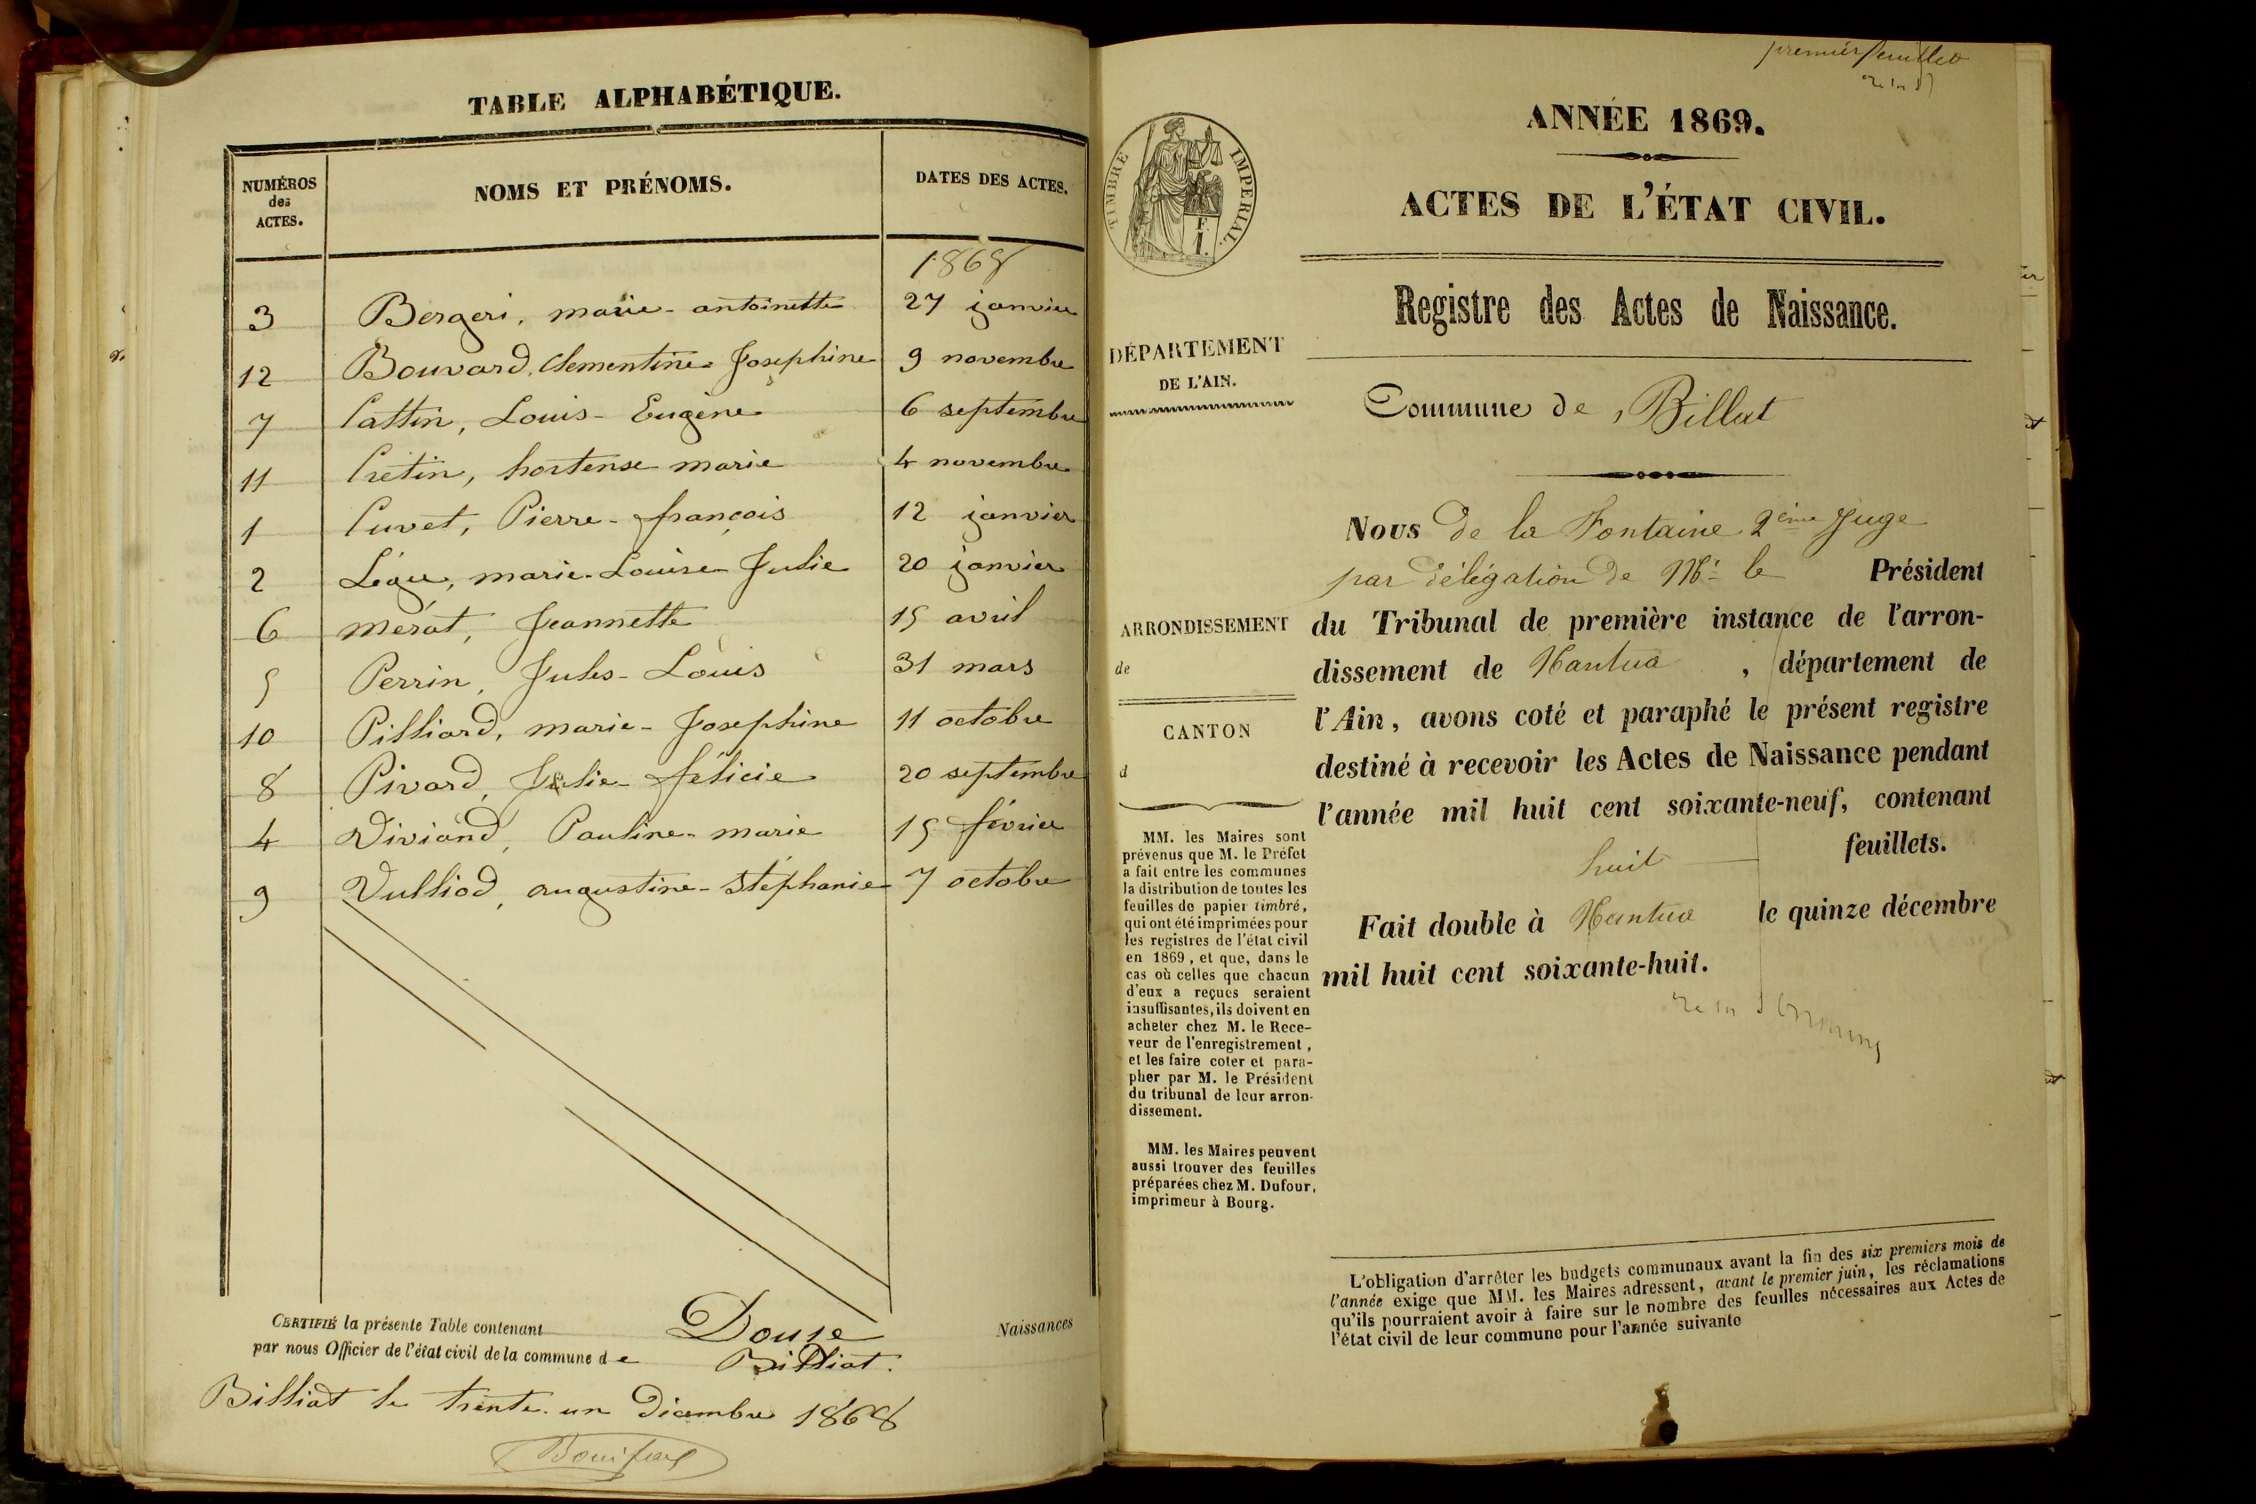 TABLE ALPHABÉTIQUE.
NUMÉROS
des
ACTES.
NOMS ET PRÉNOMS.
DATES DES ACTES.
1868
3 Bergeri, marie-antoinette 27 janvier
12 Bouvard, Clementine Josephine 9 novembre
7 Cattin, Louis-Eugène 6 septembre
11 Crétin, hortense marie 4 novembre
1 Cuvet, Pierre-françois 12 janvier
2 Léger, marie-Louise Julie 20 janvier
6 mérat, Jeannette 15 avril
5 Perrin, Jules-Louis 31 mars
10 Pilliard, marie-Josephine 11 octobre
8 Pivard, Julie félicie 20 septembre
4 Viviand, Pauline-marie 15 février
9 Vulliod, augustine-Stéphanie 7 octobre
CERTIFIÉ la présente Table contenant Douze Naissances
par nous Officier de l'état civil de la commune de Billiat.
Billiat le trente-un Décembre 1868
premier feuillet
ANNÉE 1869.
TIMBRE IMPÉRIAL.
1 F.
ACTES DE L'ÉTAT CIVIL.
Registre des Actes de Naissance.
DÉPARTEMENT
DE L'AIN.
Commune de Billiat
Nous de la Fontaine 2ème Juge
par délégation de Mr le Président
du Tribunal de première instance de l'arron-
dissement de Nantua, département de
l'Ain, avons coté et paraphé le présent registre
destiné à recevoir les Actes de Naissance pendant
l'année mil huit cent soixante-neuf, contenant
huit feuillets.
Fait double à Nantua le quinze décembre
mil huit cent soixante-huit.
ARRONDISSEMENT
de
CANTON
d
MM. les Maires sont
prévenus que M. le Préfet
a fait entre les communes
la distribution de toutes les
feuilles de papier timbré,
qui ont été imprimées pour
les registres de l'état civil
en 1869, et que, dans le
cas où celles que chacun
d'eux a reçues seraient
insuffisantes, ils doivent en
acheter chez M. le Rece-
veur de l'enregistrement,
et les faire coter et para-
pher par M. le Président
du tribunal de leur arron-
dissement.
MM. les Maires peuvent
aussi trouver des feuilles
préparées chez M. Dufour,
imprimeur à Bourg.
L'obligation d'arrêter les budgets communaux avant la fin des six premiers mois de
l'année exige que MM. les Maires adressent, avant le premier juin, les réclamations
qu'ils pourraient avoir à faire sur le nombre des feuilles nécessaires aux Actes de
l'état civil de leur commune pour l'année suivante